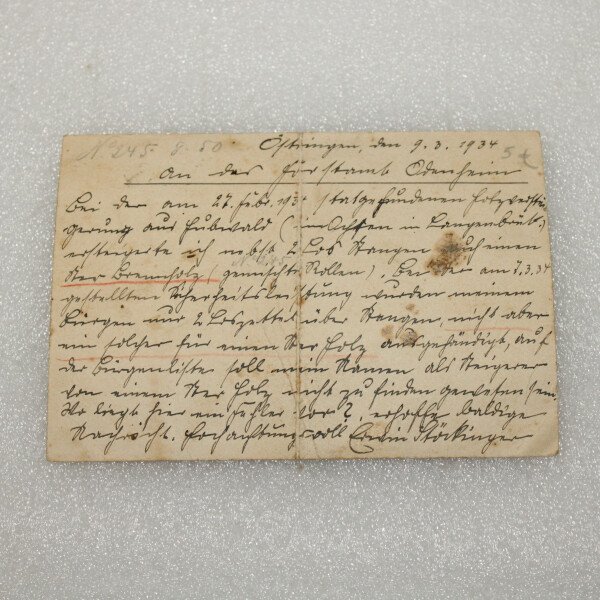 No 245. 8.50
Östringen, den 9.3.1934
An das Forstamt Odenheim
Bei der am 27. Febr. 193 statgefundenen Holzverstei
gerung aus (im Ochsen in Langenbrück.)
ersteigerte ich nebst 2 Los Stangen auch einen
Ster Brennholz (gemischte Rollen). Bei der am 7.3.34
gestellten Sicherheitsleistung wurden meinem
Bürgen nur 2 Loszettel über Stangen, nicht aber
ein solcher für einen Ster Holz ausgehändigt. Auf
der Bürgenliste soll mein Namen als Steigerer
von einem Ster Holz nicht zu finden gewesen sein.
Wo liegt hier ein Fehler vor?, erhoffe baldige
Nachricht. Hochachtungsvoll Erwin Stöckinger